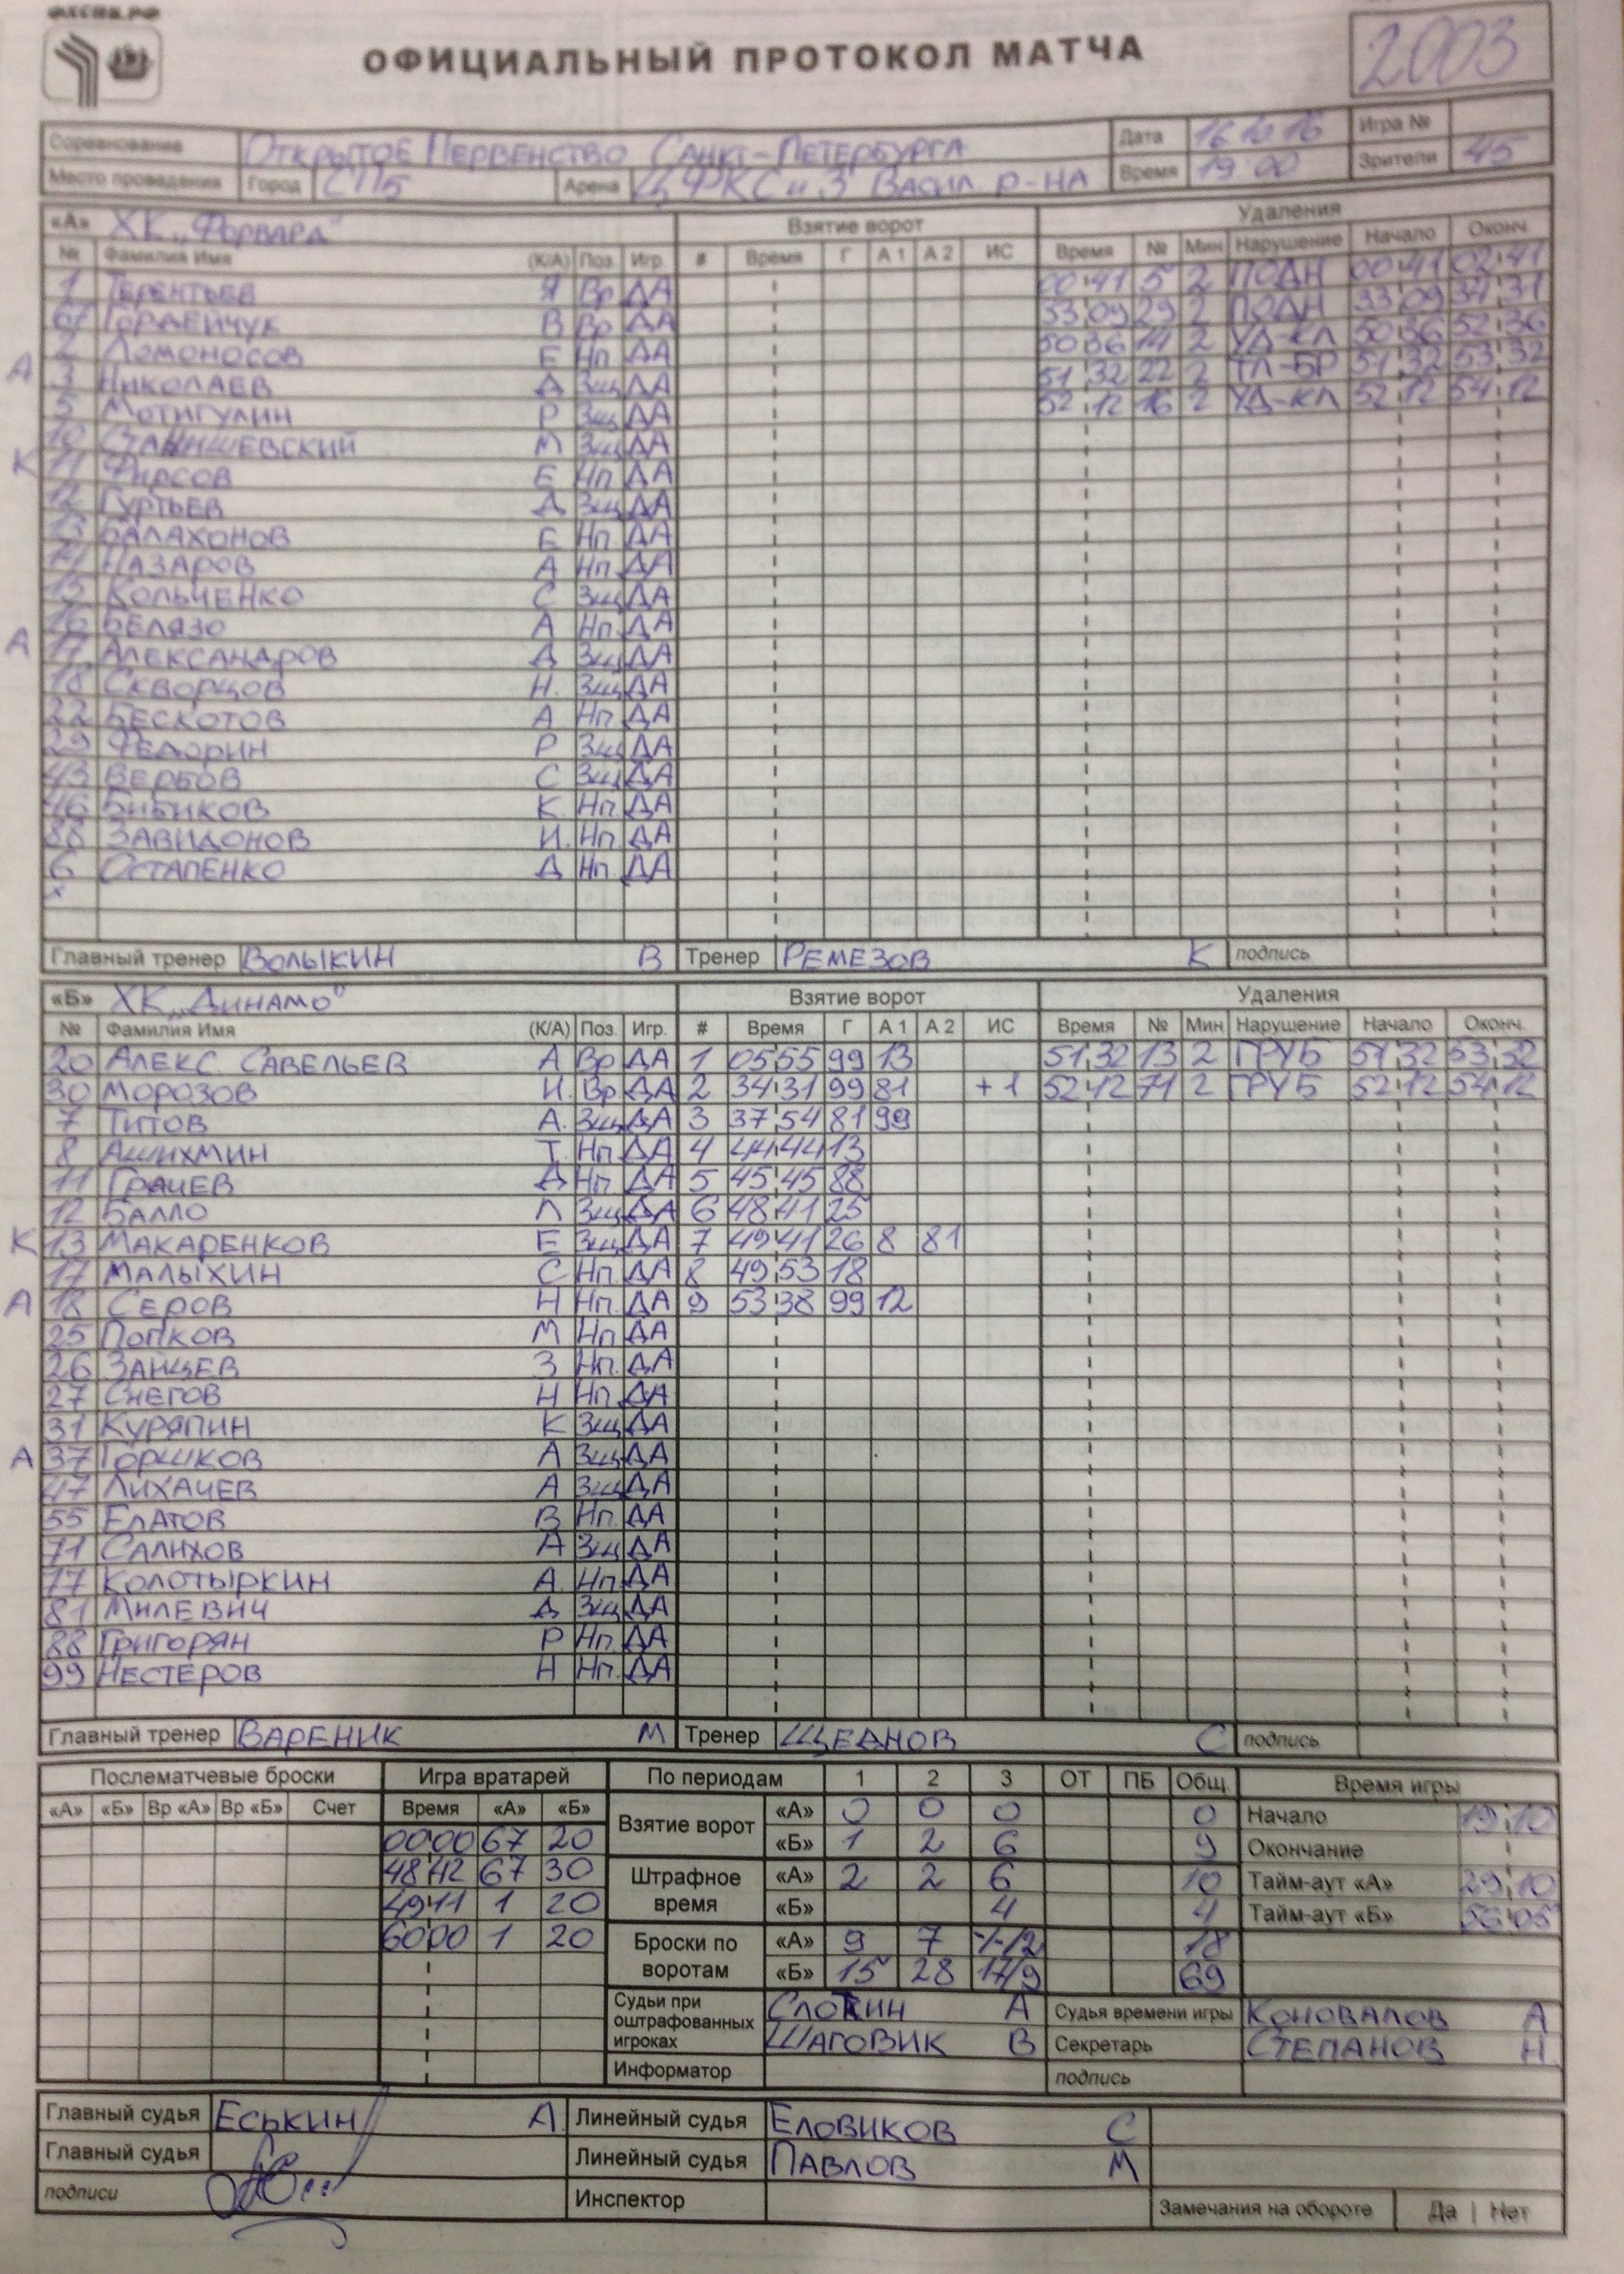 ФХСПБ.РФ
ОФИЦИАЛЬНЫЙ ПРОТОКОЛ МАТЧА
2003
Соревнование Открытое Первенство Санкт-Петербурга Дата 16.10.16 Игра №
Место проведения Город СПб Арена ЦФКС и З Васил. р-на Время 19 00 Зрители 45
«А» ХК „Форвард" Взятие ворот Удаления
№ Фамилия Имя (К/А) Поз. Игр. # Время Г А 1 А 2 ИС Время № Мин Нарушение Начало Оконч.
1 Терентьев Я Вр ДА 00 41 5 2 ПОДН 00 41 02 41
67 Гордейчук В Вр ДА 33 09 29 2 ПОДН 33 09 34 31
2 Ломоносов Е Нп ДА 50 36 14 2 УД-КЛ 50 36 52 36
А 3 Николаев Д Зщ ДА 51 32 22 2 ТЛ-БР 51 32 53 32
5 Мотигулин Р Зщ ДА 52 12 16 2 УД-КЛ 52 12 54 12
10 Станишевский М Зщ ДА
К 11 Фирсов Е Нп ДА
12 Гуртьев Д Зщ ДА
13 Балахонов Е Нп. ДА
14 Назаров А Нп. ДА
15 Кольченко С Зщ ДА
16 Белязо А Нп. ДА
А 17 Александров Д Зщ ДА
18 Скворцов Н. Зщ ДА
22 Бескотов А Нп. ДА
29 Федорин Р Зщ ДА
43 Вербов С Зщ ДА
46 Бибиков К Нп. ДА
88 Завидонов И. Нп ДА
6 Остапенко Д Нп ДА
Главный тренер Волыкин В Тренер Ремезов К подпись
«Б» ХК „Динамо" Взятие ворот Удаления
№ Фамилия Имя (К/А) Поз. Игр. # Время Г А 1 А 2 ИС Время № Мин Нарушение Начало Оконч.
20 Алекс. Савельев А Вр ДА 1 05 55 99 13 51 32 13 2 ГРУБ 51 32 53 32
30 Морозов И. Вр ДА 2 34 31 99 81 +1 52 12 71 2 ГРУБ 52 12 54 12
7 Титов А. Зщ ДА 3 37 54 81 99
8 Ашихмин Т. Нп ДА 4 44 44 13
11 Грачев Д Нп ДА 5 45 45 88
12 Балло Л Зщ ДА 6 48 41 25
К 13 Макаренков Е Зщ ДА 7 49 41 26 8 81
17 Малыхин С Нп. ДА 8 49 53 18
А 18 Серов Н Нп. ДА 9 53 38 99 12
25 Попков М Нп ДА
26 Зайцев З Нп. ДА
27 Снегов Н Нп. ДА
31 Куряпин К Зщ ДА
А 37 Горшков А Зщ ДА
47 Лихачев А Зщ ДА
55 Елатов В Нп. ДА
71 Салихов А Зщ ДА
77 Колотыркин А. Нп ДА
81 Милевич Д Зщ ДА
88 Григорян Р Нп. ДА
99 Нестеров Н Нп. ДА
Главный тренер Вареник М Тренер Щеднов С подпись
Послематчевые броски Игра вратарей По периодам 1 2 3 ОТ ПБ Общ. Время игры
«А» «Б» Вр «А» Вр «Б» Счет Время «А» «Б» Взятие ворот «А» 0 0 0 0 Начало 19 10
00 00 67 20 «Б» 1 2 6 9 Окончание
48 42 67 30 Штрафное время «А» 2 2 6 10 Тайм-аут «А» 29 10
49 41 1 20 «Б» 4 4 Тайм-аут «Б» 56 05
60 00 1 20 Броски по воротам «А» 9 7 -/-/2 18
«Б» 15 28 17/9 69
Судьи при оштрафованных игроках Слоткин А Судья времени игры Коновалов А
Шаговик В Секретарь Степанов Н.
Информатор подпись
Главный судья Еськин А Линейный судья Еловиков С
Главный судья Линейный судья Павлов М
подписи Инспектор Замечания на обороте Да | Нет